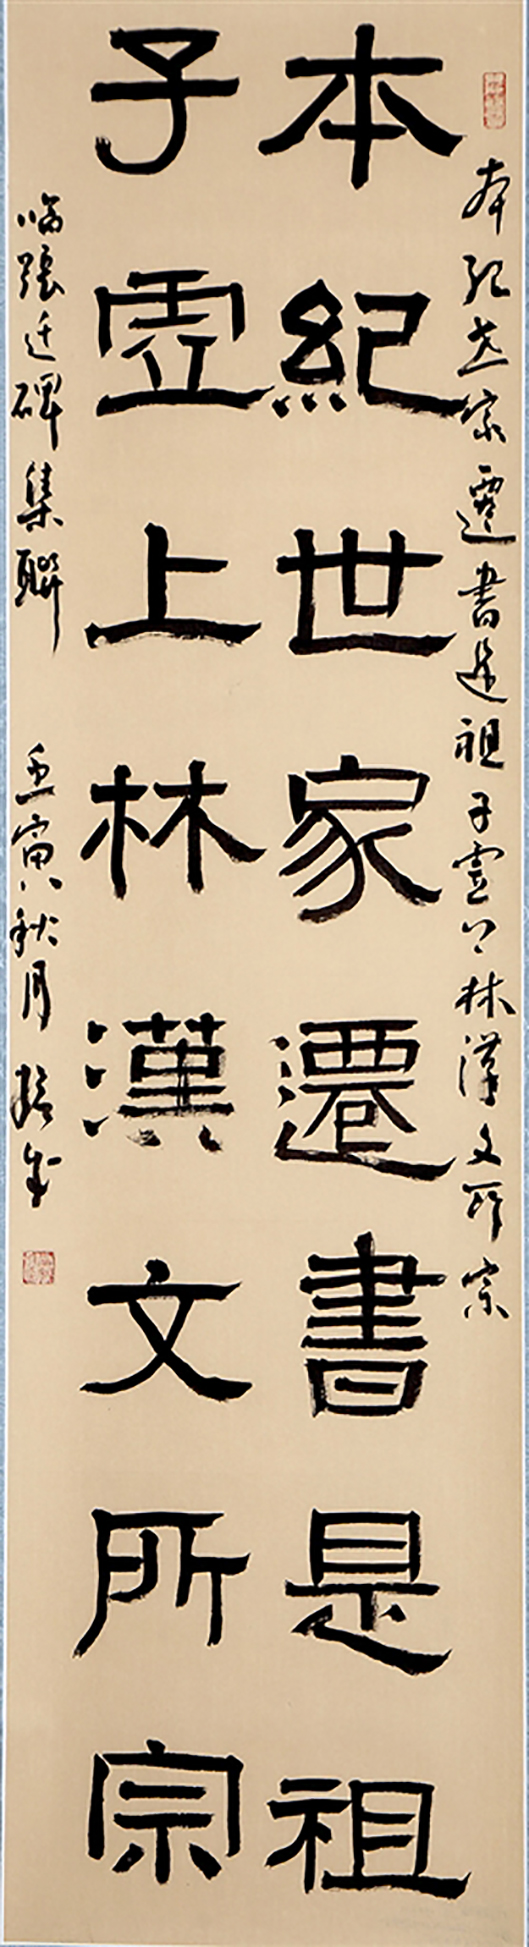 本紀世家遷書是祖子虛上林漢文所宗
本紀世家遷書是祖
子虛上林漢文所宗
臨張遷碑集聯 壬寅秋月